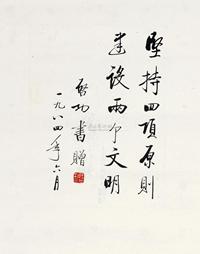 堅持四項原則
建设兩个文明
啓功書贈
一九八四年六月